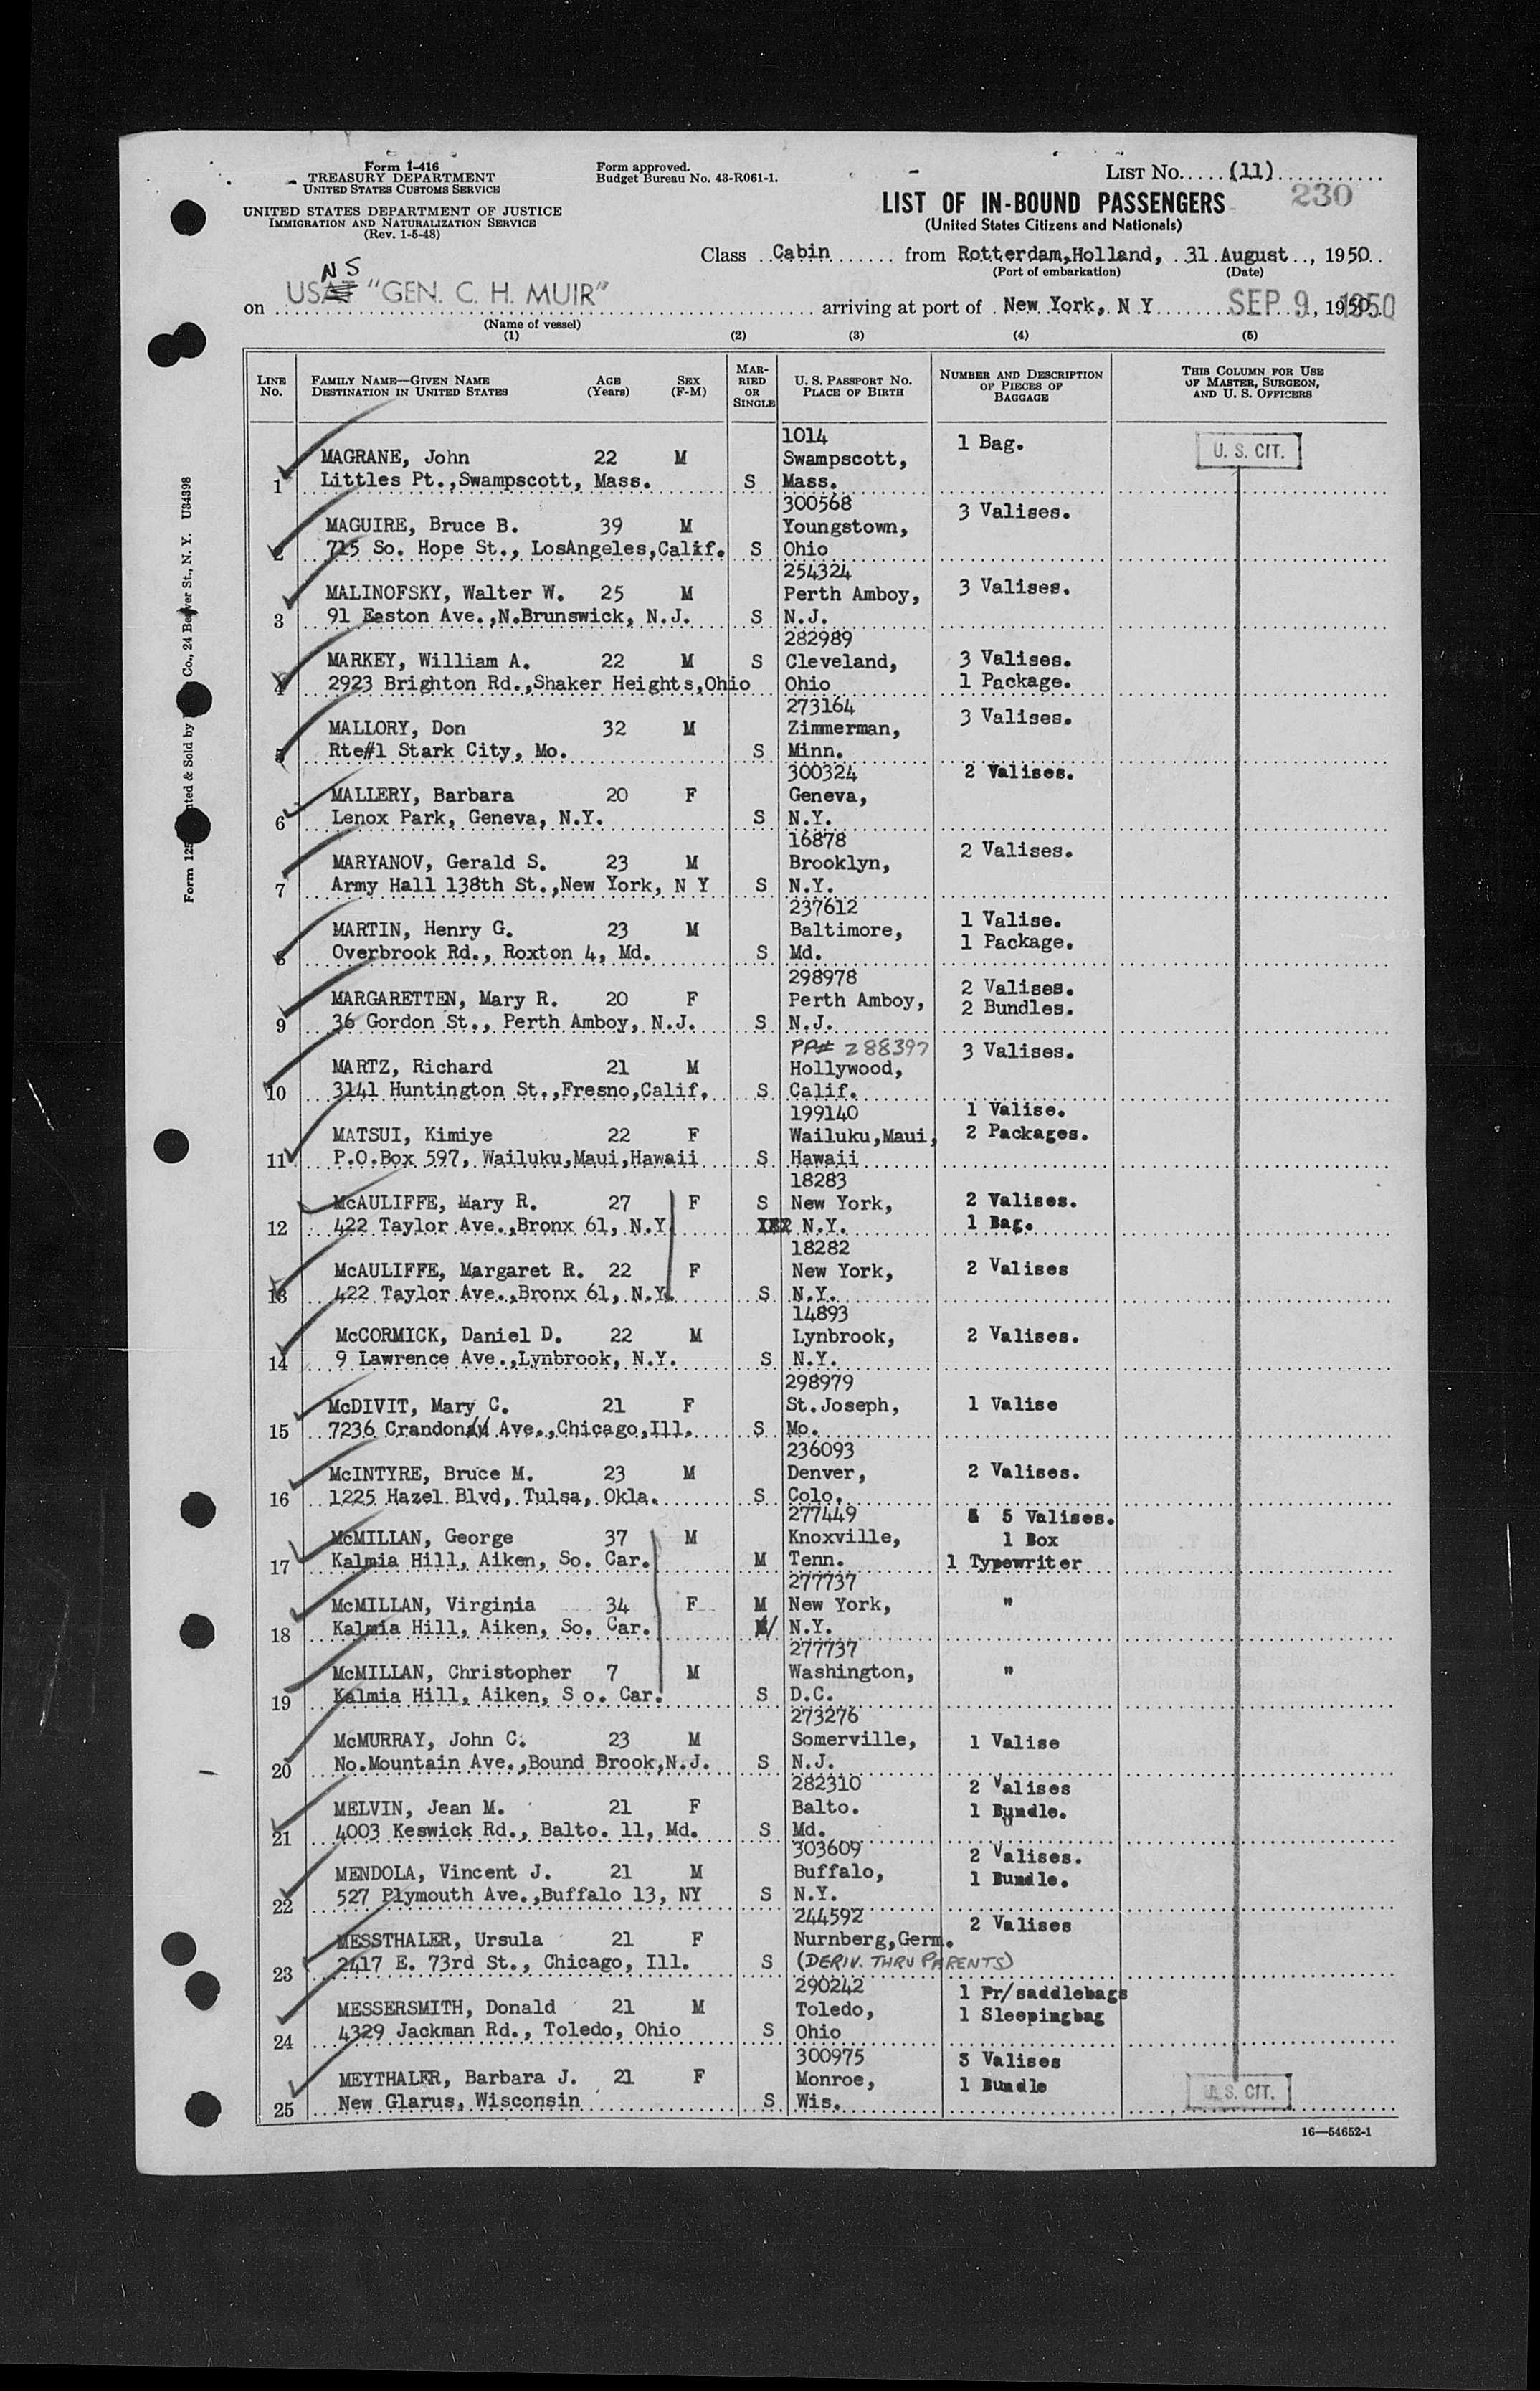 Form I-416
TREASURY DEPARTMENT
UNITED STATES CUSTOMS SERVICE
UNITED STATES DEPARTMENT OF JUSTICE
IMMIGRATION AND NATURALIZATION SERVICE
(Rev. 1-5-48)
Form approved.
Budget Bureau No. 43-R061-1.
LIST No. (11)
230
LIST OF IN-BOUND PASSENGERS
(United States Citizens and Nationals)
Class Cabin from Rotterdam,Holland, 31 August, 1950
(Port of embarkation) (Date)
on USNS "GEN. C. H. MUIR" arriving at port of New York, N Y SEP 9, 1950 1950
(Name of vessel)
(1) (2) (3) (4) (5)
LINE No. FAMILY NAME—GIVEN NAME DESTINATION IN UNITED STATES AGE (Years) SEX (F-M) MARRIED OR SINGLE U. S. PASSPORT NO. PLACE OF BIRTH NUMBER AND DESCRIPTION OF PIECES OF BAGGAGE THIS COLUMN FOR USE OF MASTER, SURGEON, AND U. S. OFFICERS
1014 1 Bag.
MAGRANE, John 22 M Swampscott, U. S. CIT.
1 Littles Pt.,Swampscott, Mass. S Mass.
300568 3 Valises.
MAGUIRE, Bruce B. 39 M Youngstown,
2 715 So. Hope St., LosAngeles,Calif. S Ohio
254324
MALINOFSKY, Walter W. 25 M Perth Amboy, 3 Valises.
3 91 Easton Ave.,N.Brunswick, N.J. S N.J.
282989
MARKEY, William A. 22 M S Cleveland, 3 Valises.
4 2923 Brighton Rd.,Shaker Heights,Ohio Ohio 1 Package.
273164 3 Valises.
MALLORY, Don 32 M Zimmerman,
5 Rte#1 Stark City, Mo. S Minn.
300324 2 Valises.
MALLERY, Barbara 20 F Geneva,
6 Lenox Park, Geneva, N.Y. S N.Y.
16878 2 Valises.
MARYANOV, Gerald S. 23 M Brooklyn,
7 Army Hall 138th St.,New York, N Y S N.Y.
237612 1 Valise.
MARTIN, Henry G. 23 M Baltimore, 1 Package.
8 Overbrook Rd., Roxton 4, Md. S Md.
298978 2 Valises.
MARGARETTEN, Mary R. 20 F Perth Amboy, 2 Bundles.
9 36 Gordon St., Perth Amboy, N.J. S N.J.
PP# 288397 3 Valises.
MARTZ, Richard 21 M Hollywood,
10 3141 Huntington St.,Fresno,Calif, S Calif.
199140 1 Valise.
MATSUI, Kimiye 22 F Wailuku,Maui, 2 Packages.
11 P.O.Box 597, Wailuku,Maui,Hawaii S Hawaii
18283
McAULIFFE, Mary R. 27 F S New York, 2 Valises.
12 422 Taylor Ave.,Bronx 61, N.Y. N.Y. 1 Bag.
18282
McAULIFFE, Margaret R. 22 F New York, 2 Valises
13 422 Taylor Ave.,Bronx 61, N.Y. S N.Y.
14893
McCORMICK, Daniel D. 22 M Lynbrook, 2 Valises.
14 9 Lawrence Ave.,Lynbrook, N.Y. S N.Y.
298979
McDIVIT, Mary C. 21 F St.Joseph, 1 Valise
15 7236 Crandon Ave.,Chicago,Ill. S Mo.
236093
McINTYRE, Bruce M. 23 M Denver, 2 Valises.
16 1225 Hazel Blvd, Tulsa, Okla. S Colo.
277449 5 Valises.
McMILLAN, George 37 M Knoxville, 1 Box
17 Kalmia Hill, Aiken, So. Car. M Tenn. 1 Typewriter
277737
McMILLAN, Virginia 34 F M New York, "
18 Kalmia Hill, Aiken, So. Car. N.Y.
277737
McMILLAN, Christopher 7 M Washington, "
19 Kalmia Hill, Aiken, S o. Car. S D.C.
273276
McMURRAY, John C. 23 M Somerville, 1 Valise
20 No.Mountain Ave.,Bound Brook,N.J. S N.J.
282310 2 Valises
MELVIN, Jean M. 21 F Balto. 1 Bundle.
21 4003 Keswick Rd., Balto. 11, Md. S Md.
303609 2 Valises.
MENDOLA, Vincent J. 21 M Buffalo, 1 Bundle.
22 527 Plymouth Ave.,Buffalo 13, NY S N.Y.
244592 2 Valises
MESSTHALER, Ursula 21 F Nurnberg,Germ.
23 2417 E. 73rd St., Chicago, Ill. S (DERIV. THRU PARENTS)
290242 1 Pr/saddlebags
MESSERSMITH, Donald 21 M Toledo, 1 Sleepingbag
24 4329 Jackman Rd., Toledo, Ohio S Ohio
300975 3 Valises
MEYTHALER, Barbara J. 21 F Monroe, 1 Bundle U. S. CIT.
25 New Glarus, Wisconsin S Wis.
16—54652-1